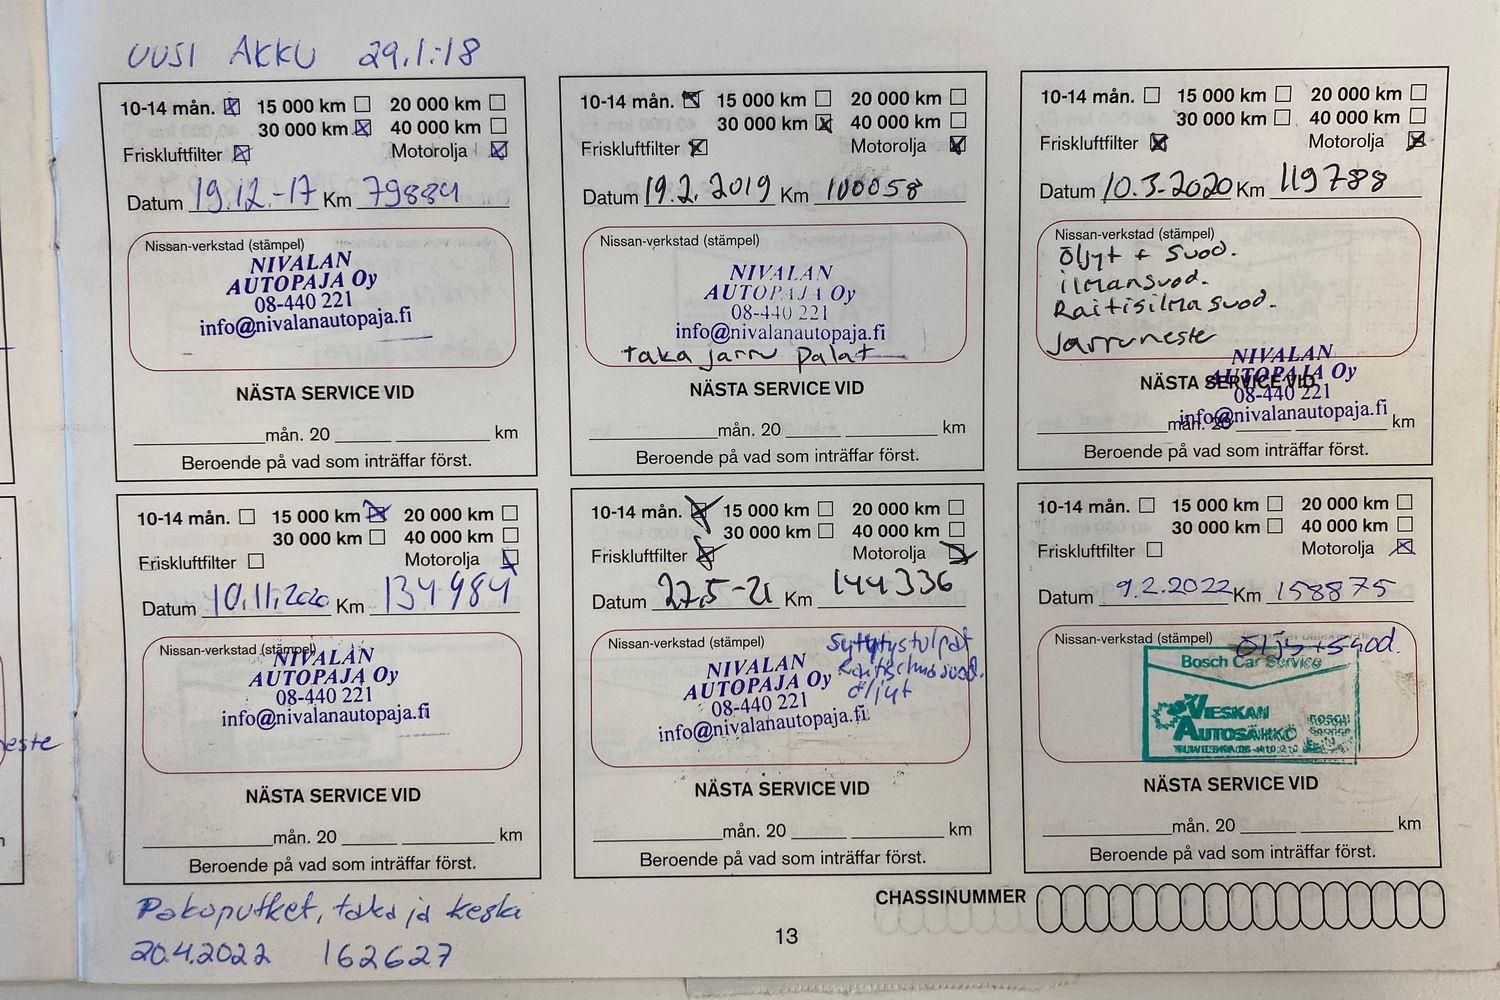 UUSI AKKU 29.1.-18
10-14 mån. 15 000 km 20 000 km
30 000 km 40 000 km
Friskluftfilter Motorolja
Datum 19.12.-17 Km 79884
Nissan-verkstad (stämpel)
NIVALAN
AUTOPAJA Oy
08-440 221
info@nivalanautopaja.fi
NÄSTA SERVICE VID
mån. 20 km
Beroende på vad som inträffar först.
10-14 mån. 15 000 km 20 000 km
30 000 km 40 000 km
Friskluftfilter Motorolja
Datum 19.2.2019 Km 100058
Nissan-verkstad (stämpel)
NIVALAN
AUTOPAJA Oy
08-440 221
info@nivalanautopaja.fi
taka jarru palat
NÄSTA SERVICE VID
mån. 20 km
Beroende på vad som inträffar först.
10-14 mån. 15 000 km 20 000 km
30 000 km 40 000 km
Friskluftfilter Motorolja
Datum 10.3.2020 Km 119788
Nissan-verkstad (stämpel)
öljyt + suod.
ilmansuod.
Raitisilmasuod.
Jarruneste
NIVALAN
AUTOPAJA Oy
NÄSTA SERVICE VID
08-440 221
info@nivalanautopaja.fi
mån. 20 km
Beroende på vad som inträffar först.
10-14 mån. 15 000 km 20 000 km
30 000 km 40 000 km
Friskluftfilter Motorolja
Datum 10.11.2020 Km 134984
Nissan-verkstad (stämpel)
NIVALAN
AUTOPAJA Oy
08-440 221
info@nivalanautopaja.fi
NÄSTA SERVICE VID
mån. 20 km
Beroende på vad som inträffar först.
10-14 mån. 15 000 km 20 000 km
30 000 km 40 000 km
Friskluftfilter Motorolja
Datum 27.5-21 Km 144336
Nissan-verkstad (stämpel)
Sytytystulpat
öljyt
NIVALAN
AUTOPAJA Oy
08-440 221
info@nivalanautopaja.fi
NÄSTA SERVICE VID
mån. 20 km
Beroende på vad som inträffar först.
10-14 mån. 15 000 km 20 000 km
30 000 km 40 000 km
Friskluftfilter Motorolja
Datum 9.2.2022 Km 158875
Nissan-verkstad (stämpel)
öljy + suod.
Bosch Car Service
VIESKAN
AUTOSÄHKÖ
NÄSTA SERVICE VID
mån. 20 km
Beroende på vad som inträffar först.
Pakoputket, taka ja keski
20.4.2022 162627
CHASSINUMMER
13